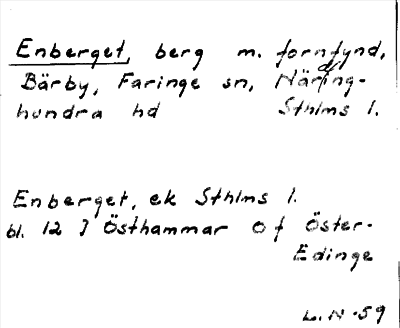 Enberget, berg m. fornfynd,
Bärby, Faringe sn, Närding-
hundra hd Sthlms l.
Enberget, ek Sthlms l.
bl. 12 J Östhammar of Öster-
Edinge
L.N -59